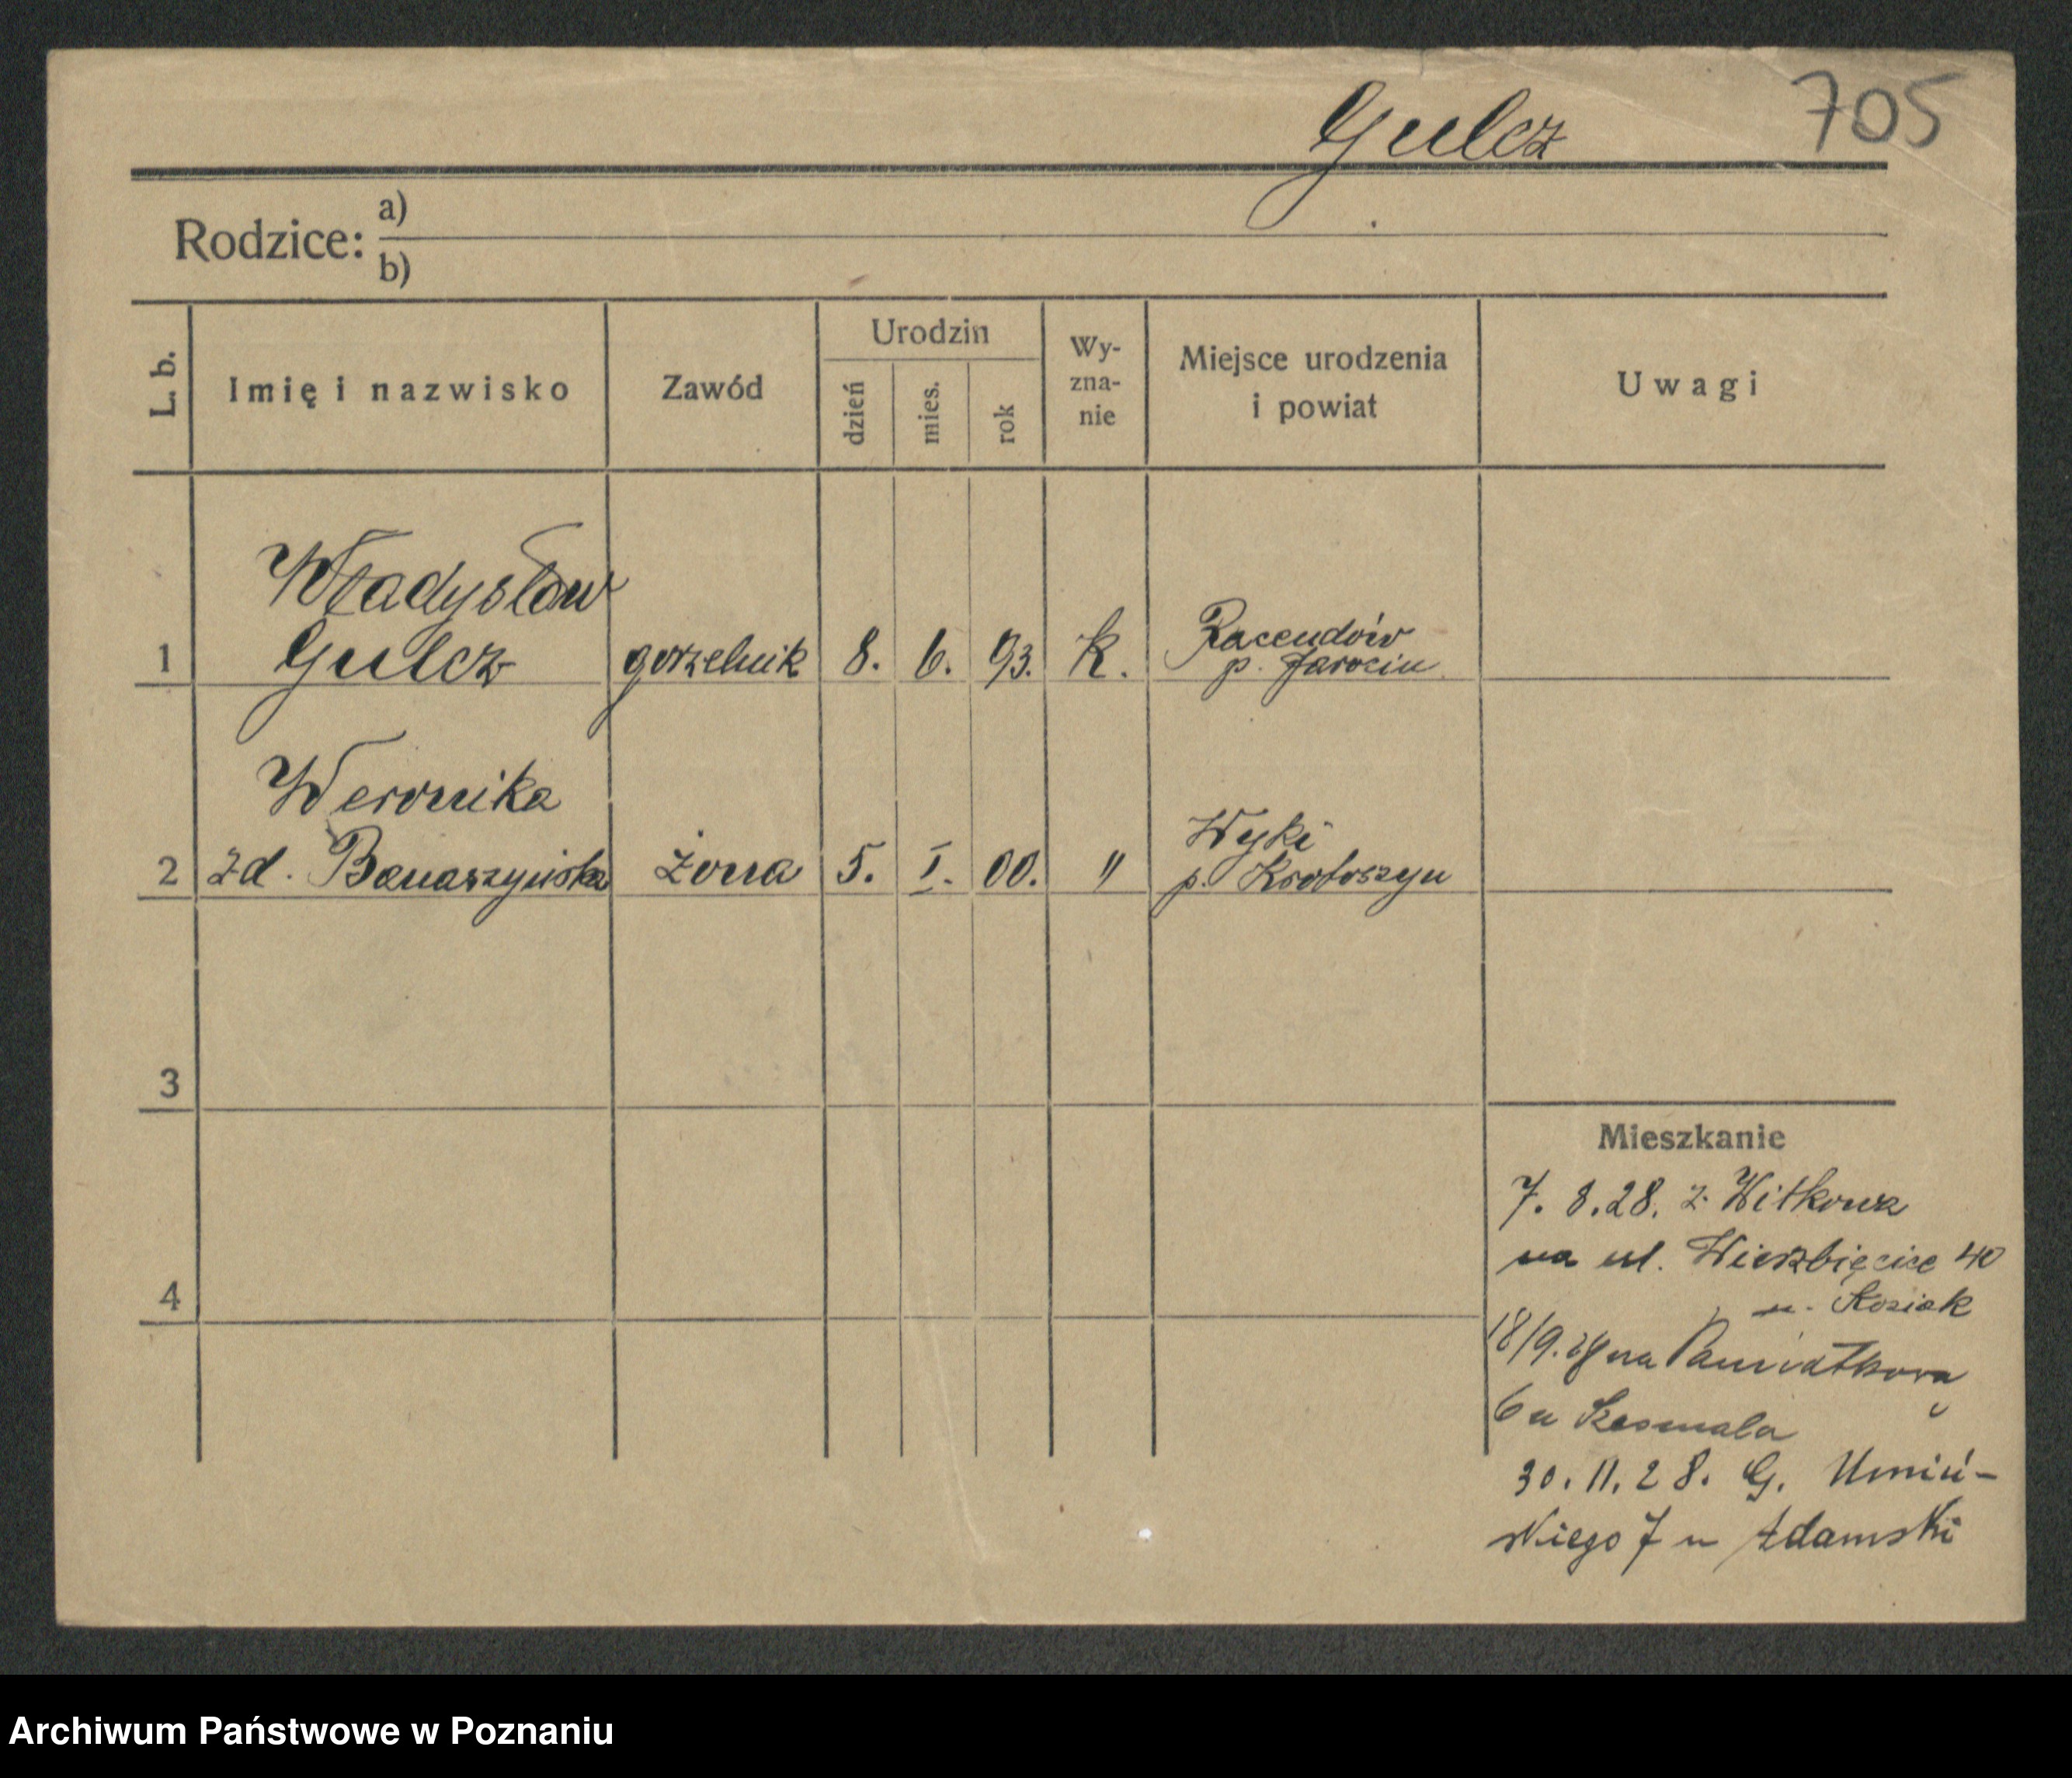 Gulcz 705
Rodzice: a)
b)
L. b. Imię i nazwisko Zawód Urodzin dzień mies. rok Wy-zna-nie Miejsce urodzenia i powiat Uwagi
Władysław
1 Gulcz gorzelnik 8. 6. 93. K. Racendów
p. Jarocin
Weronika
2 zd. Banaszyńska żona 5. I. 00. " Wyki
p. Krotoszyn
3
4
Mieszkanie
7. 8.28. z Witkowa
na ul. Wierzbięcice 40
u. Kosiak
18/9.28 na Pamiątkową
6 u
30.11.28. G. Umiń-
skiego 7 u Adamski
Archiwum Państwowe w Poznaniu